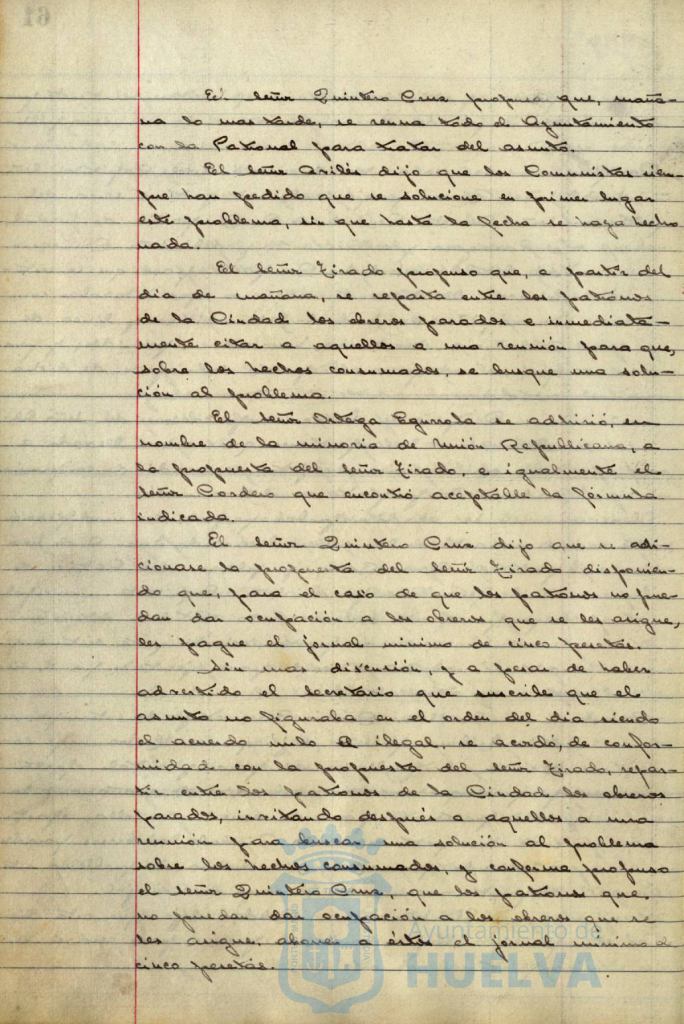 El señor Quintero Cruz propuso que, maña-
na lo mas tarde, se reuna todo el Ayuntamiento
con la Patronal para tratar del asunto.
El señor Avilés dijo que los Comunistas siem-
pre han pedido que se solucione en primer lugar
este problema, sin que hasta la fecha se haya hecho
nada.
El señor Tirado propuso que, a partir del
dia de mañana, se reparta entre los patronos
de la Ciudad los obreros parados e inmediata-
mente citar a aquellos a una reunión para que,
sobre los hechos consumados, se busque una solu-
ción al problema.
El señor Ortega Egurrola se adhirió, en
nombre de la minoria de Unión Republicana, a
la propuesta del señor Tirado, e igualmente el
señor Cordero que encontró aceptable la fórmula
indicada.
El señor Quintero Cruz dijo que se adi-
cionase la propuesta del señor Tirado disponien-
do que, para el caso de que los patronos no pue-
dan dar ocupación a los obreros que se les asigne,
les pague el jornal minimo de cinco pesetas.
Sin mas discusión, y a pesar de haber
advertido el Secretario que suscribe que el
asunto no figuraba en el orden del dia siendo
el acuerdo nulo e ilegal, se acordó, de confor-
midad con la propuesta del señor Tirado, repar-
tir entre los patronos de la Ciudad los obreros
parados, invitando después a aquellos a una
reunión para buscar una solución al problema
sobre los hechos consumados, y conforme propuso
el señor Quintero Cruz, que los patronos que
no puedan dar ocupación a los obreros que se
les asigne, abonen a éstos el jornal minimo de
cinco pesetas.
Ayuntamiento de
HUELVA
61